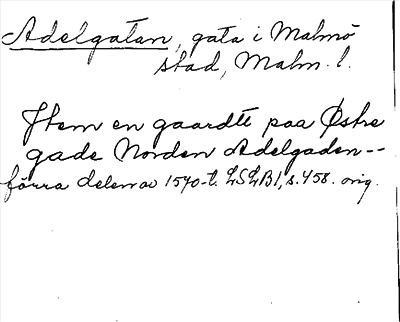 Adelgatan, gata i Malmö
stad, Malm. l.
Item en gaardtt paa Østre
gade Norden Adelgaden--
förra delen av 1540-t. LSLB1, s. 458. orig.